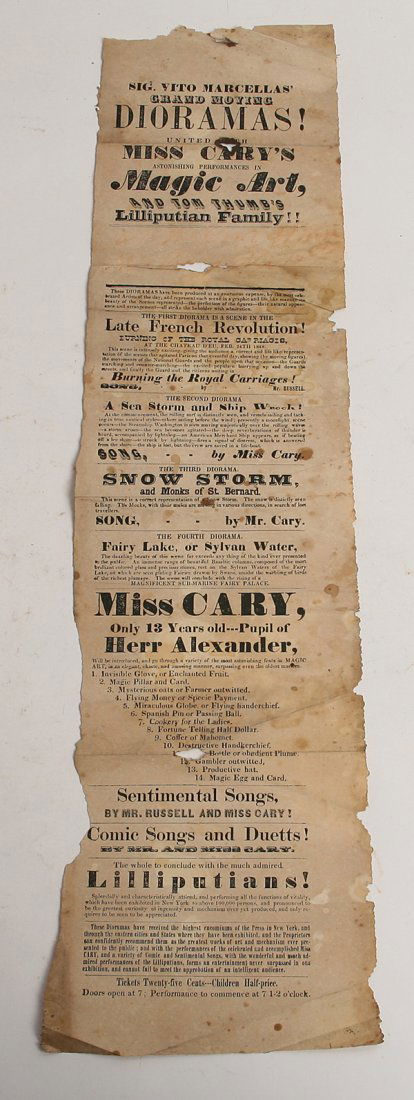 SIG. VITO MARCELLAS'
GRAND MOVING
DIORAMAS!
UNITED WITH
MISS CARY'S
ASTONISHING PERFORMANCES IN
Magic Art,
AND TOM THUMB'S
Lilliputian Family!!
These DIORAMAS have been produced at an enormous expense, by the most cele-
brated Artists of the day, and represent each scene in a graphic and life like manner—the
beauty of the Scenes represented—the perfection of the figures—their natural appear-
ance and arrangement—all strike the beholder with admiration.
THE FIRST DIORAMA IS A SCENE IN THE
Late French Revolution!
BURNING OF THE ROYAL CARRIAGES,
AT THE CHATEAU D'EU, FEB. 24TH 1848.
This scene is critically exciting, giving the audience a correct and life like represen-
tation of the scenes that agitated Parisians that eventful day, showing the moving figures,
the movements of the National Guards and the people upon that occasion—the Guards
marching and counter-marching—the excited populace hurrying up and down the
streets, and finally the Guard and the citizens uniting in
Burning the Royal Carriages!
SONG, by Mr. RUSSELL.
THE SECOND DIORAMA
A Sea Storm and Ship Wreck!
At the commencement, the rolling surf is distinctly seen, and vessels sailing and tack-
ing in true natural style—others sailing before the wind; presently a moonlight scene
occurs—the Steamship Washington is seen moving majestically over the rolling waves
—a storm arises—the sea becomes agitated—the deep reverberations of thunder is
heard, accompanied by lightning—an American Merchant Ship appears, as if beating
off a lee shore—is struck by lightning—fires a signal of distress, which is answered
from the shore—the ship is lost, but the crew are saved in a lifeboat.
SONG, - - by Miss Cary.
THE THIRD DIORAMA.
SNOW STORM,
and Monks of St. Bernard.
This scene is a correct representation of a Snow Storm. The snow is distinctly seen
falling. The Monks, with their mules are moving in various directions, in search of lost
travellers.
SONG, - - by Mr. Cary.
THE FOURTH DIORAMA.
Fairy Lake, or Sylvan Water,
The dazzling beauty of this scene far exceeds any thing of the kind ever presented
to the public. An immense range of beautiful Basaltic columns, composed of the most
brilliant colored glass and precious stones, rest on the Sylvan Waters of the Fairy
Lake, on which are seen gliding Fairies drawn by Swans, amidst the warbling of birds
of the richest plumage. The scene will conclude with the rising of a
MAGNIFICENT SUB-MARINE FAIRY PALACE.
Miss CARY,
Only 13 Years old---Pupil of
Herr Alexander,
Will be introduced, and go through a variety of the most astonishing feats in MAGIC
ART, in an elegant, chaste, and amusing manner, surpassing even the oldest master.
1. Invisible Glove, or Enchanted Fruit.
2. Magic Pillar and Card.
3. Mysterious oats or Farmer outwitted.
4. Flying Money or Specie Payment.
5. Miraculous Globe, or Flying handerchief.
6. Spanish Pin or Passing Ball.
7. Cookery for the Ladies.
8. Fortune Telling Half Dollar.
9. Coffer of Mahomet.
10. Destructive Handkerchief.
Bottle or obedient Plume.
12. Gambler outwitted,
13. Productive hat.
14. Magic Egg and Card.
Sentimental Songs,
BY MR. RUSSELL AND MISS CARY!
Comic Songs and Duetts!
BY MR. AND MISS CARY.
The whole to conclude with the much admired
Lilliputians!
Splendidly and characteristically attired, and performing all the functions of vitality,
which have been exhibited in New York to above 100,000 persons, and pronounced to
be the greatest curiosity of ingenuity and mechanism ever yet produced, and only re-
quires to be seen to be appreciated.
These Dioramas have received the highest encomiums of the Press in New York, and
through the eastern cities and States where they have been exhibited, and the Proprietors
can confidently recommend them as the greatest works of art and mechanism ever pre-
sented to the public; and with the performances of the celebrated and accomplished Miss
CARY, and a variety of Comic and Sentimental Songs, with the wonderful and much ad-
mired performances of the Lilliputians, forms an entertainment never surpassed in one
exhibition, and cannot fail to meet the approbation of an intelligent audience.
Tickets Twenty-five Cents---Children Half-price.
Doors open at 7; Performance to commence at 7 1-2 o'clock.